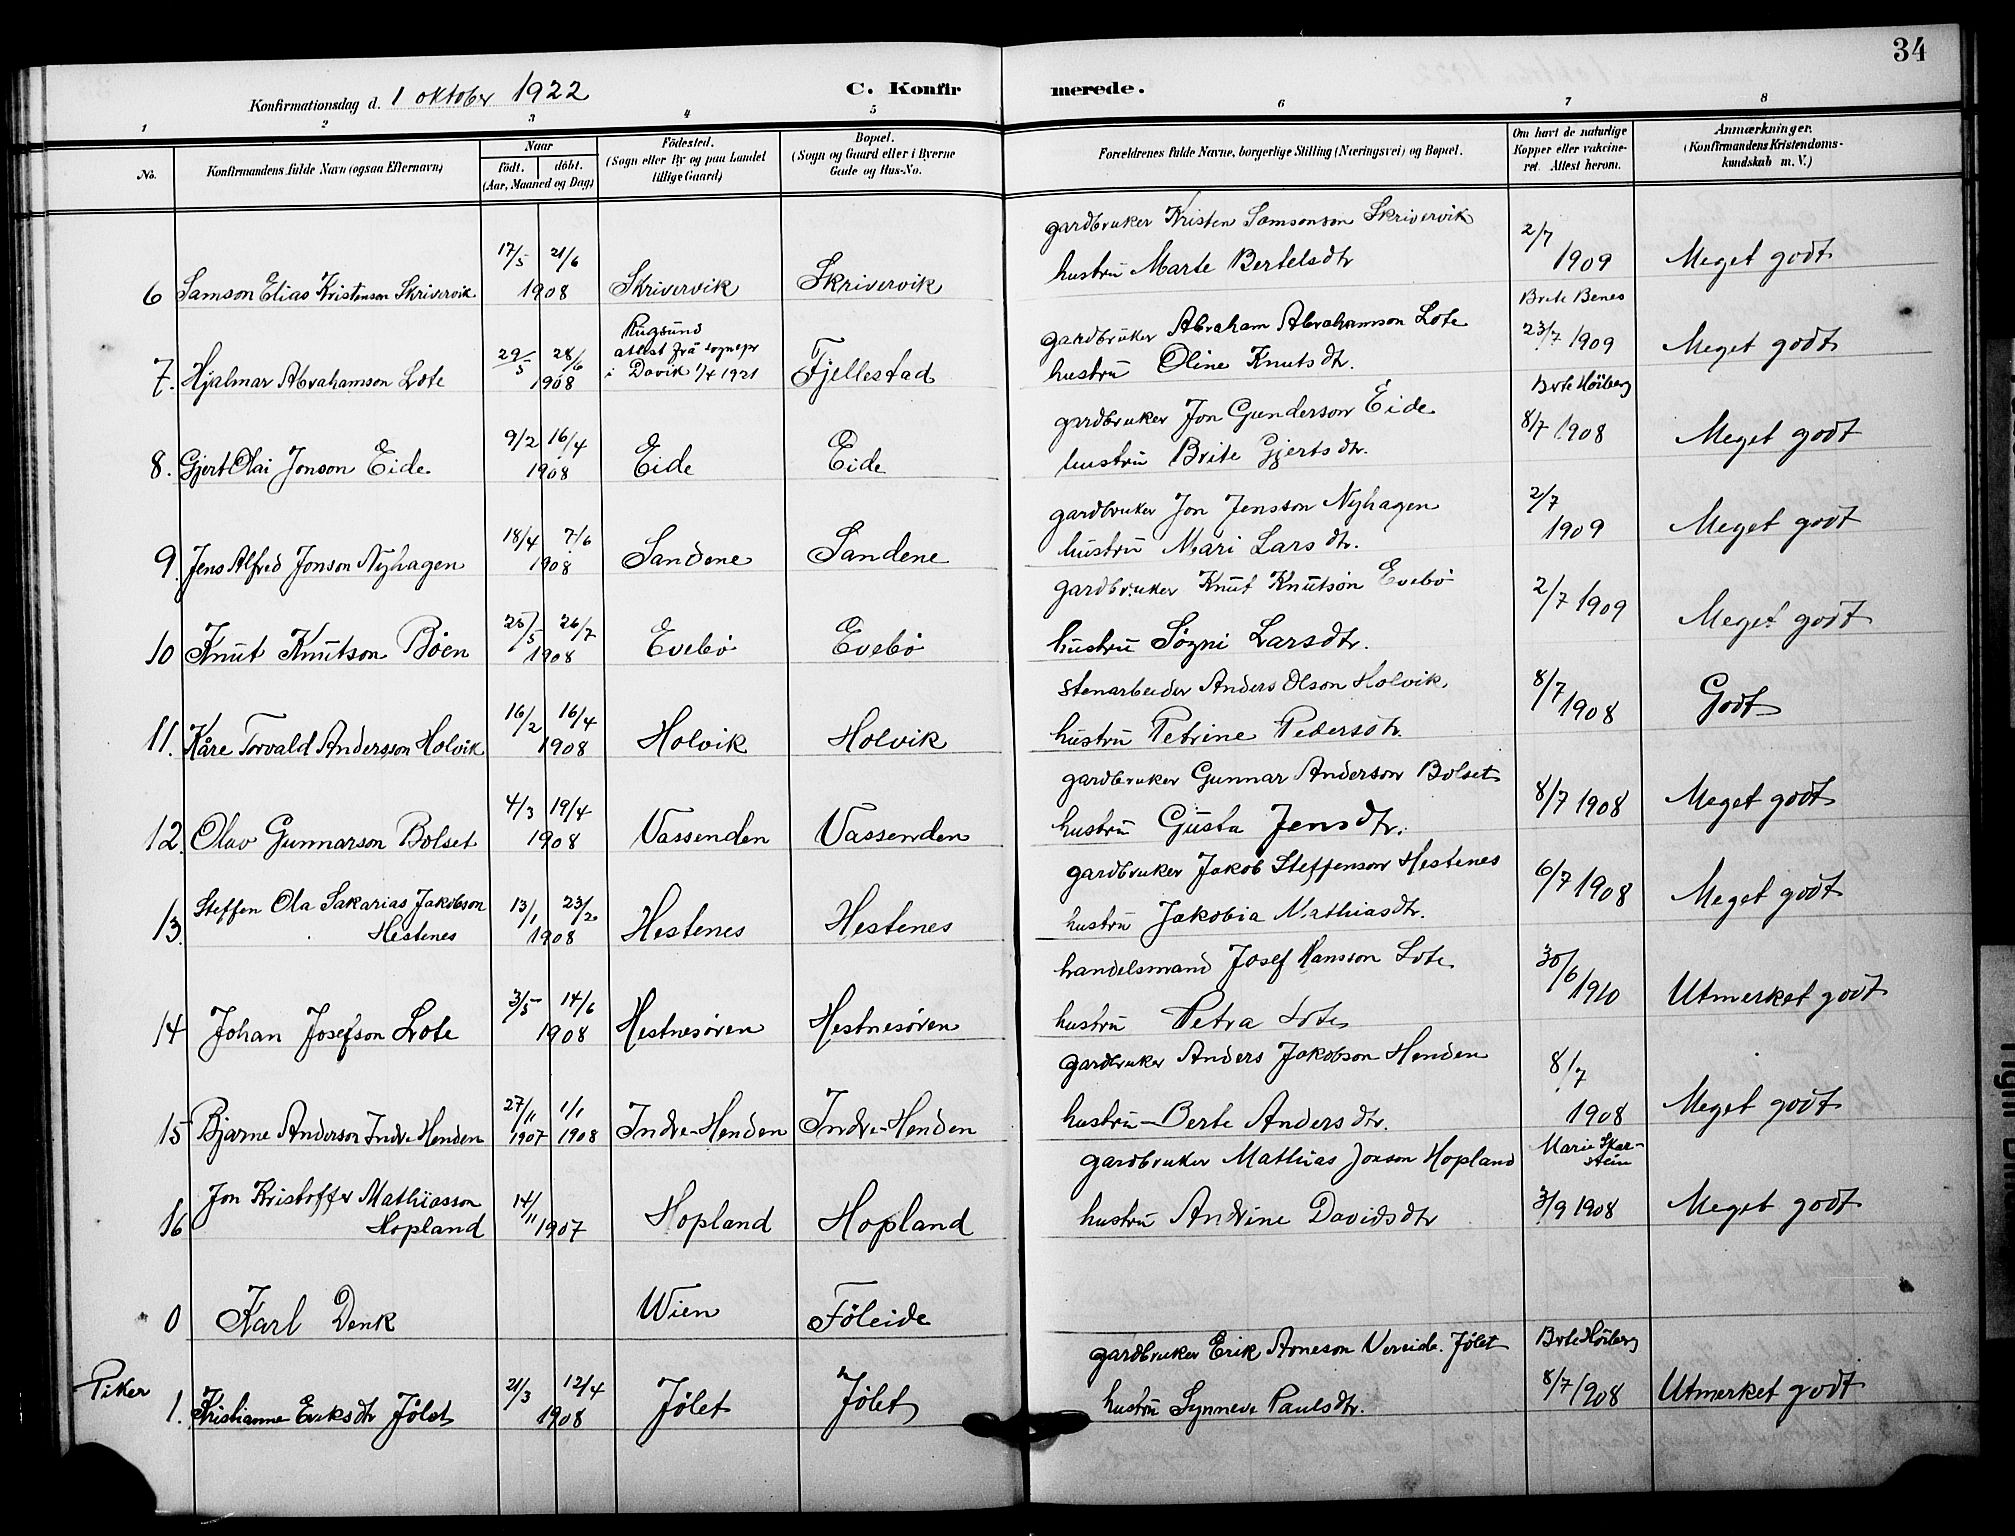 34
Konfirmationsdag d. 1 oktober 1922
C. Konfirmerede.
1 2 3 4 5 6 7 8
No.
Konfirmandens fulde Navn (ogsaa Efternavn)
Naar
født. døbt.
(Aar, Maaned og Dag)
Fødested.
(Sogn eller By og paa Landet
tillige Gaard)
Bopæl.
(Sogn og Gaard eller i Byerne
Gade og Hus-No.
Forældrenes fulde Navne, borgerlige Stilling (Næringsvei) og Bopæl.
Om havt de naturlige
Kopper eller vaccine-
ret. Attest herom.
Anmærkninger.
(Konfirmandens Kristendoms-
kundskab m. V.)
6 Samson Elias Kristenson Skrivervik 17/5 21/6 1908 Skrivervik Skrivervik
gardbruker Kristen Samsonson Skrivervik
hustru Marte Bertelsdtr
2/7 1909 Meget godt
7. Hjalmar Abrahamson Lote 29/5 28/6 1908
Rugsund
attest frå sognepr
i Davik 1/4 1921
Fjellestad
gardbruker Abraham Abrahamson Lote
hustru Oline Knutsdtr.
Brite Benes
23/7 1909 Meget godt
8. Gjert Olai Jonson Eide 9/2 16/4 1908 Eide Eide
gardbruker Jon Gunderson Eide
hustru Brite Gjertsdtr.
Brte Höiberg
8/7 1908 Meget godt
9. Jens Alfred Jonson Nyhagen 18/4 7/6 1908 Sandene Sandene
gardbruker Jon Jensson Nyhagen
hustru Mari Larsdtr.
2/7 1909 Meget godt
10 Knut Knutson Bøen 25/5 26/7 1908 Evebö Evebö
gardbruker Knut Knutson Evebö
hustru Søgni Larsdtr.
2/7 1909 Meget godt
11. Kåre Torvald Andersson Holvik 16/2 16/4 1908 Holvik Holvik
stenarbeider Anders Olson Holvik
hustru Petrine Pedersdtr.
8/7 1908 Godt
12. Olav Gunnarson Bolset 4/3 19/4 1908 Vassenden Vassenden
gardbruker Gunnar Anderson Bolset
hustru Gusta Jensdtr.
8/7 1908 Meget godt
13. Steffen Ola Sakarias Jakobson
Hestenes 13/1 23/2 1908 Hestenes Hestenes
gardbruker Jakob Steffenson Hestenes
hustru Jakobia Mathiasdtr.
6/7 1908 Meget godt
14 Johan Josefson Lote 3/5 14/6 1908 Hestnesören Hestnesören
handelsmand Josef Hansson Lote
hustru Petra Lote
30/6 1910 Utmerket godt
15 Bjarne Anderson Indre-Henden 27/11 1907 1/1 1908 Indre-Henden Indre-Henden
gardbruker Anders Jakobson Henden
hustru Berte Andersdtr.
8/7 1908 Meget godt
16 Jon Kristoffer Mathiasson
Hopland 14/11 1907 Hopland Hopland
gardbruker Mathias Jonson Hopland
hustru Andrine Davidsdtr
Marie Skar-
stein
3/9 1908 Meget godt
0 Karl Denk Wien Föleide
Piker
1. Kristianne Eriksdtr Jölet 21/3 12/4 1908 Jölet Jölet
gardbruker Erik Arneson Vereide. Jölet
hustru Synneve Paulsdtr.
Brte Höiberg
8/7 1908 Utmerket godt